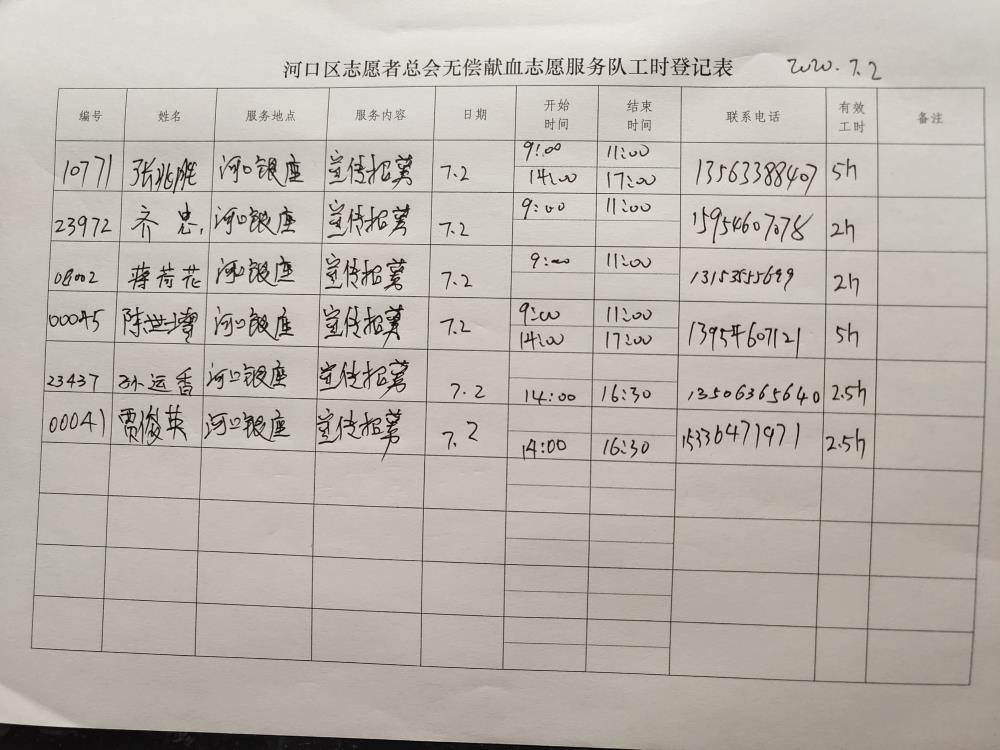 河口区志愿者总会无偿献血志愿服务队工时登记表 2020.7.2
编号 姓名 服务地点 服务内容 日期 开始时间 结束时间 联系电话 有效工时 备注
10771 张兆胜 河口银座 宣传招募 7.2 9:00 11:00 13563388407 5h
14:00 17:00
23972 齐忠 河口银座 宣传招募 7.2 9:00 11:00 15954607078 2h
08002 蒋荷花 河口银座 宣传招募 7.2 9:00 11:00 13153555699 2h
00045 陈世 河口银座 宣传招募 7.2 9:00 11:00 13954607121 5h
14:00 17:00
23437 孙运香 河口银座 宣传招募 7.2 14:00 16:30 13506365640 2.5h
00041 贾俊英 河口银座 宣传招募 7.2 14:00 16:30 15336471971 2.5h